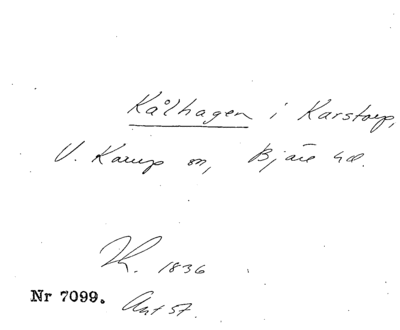 Kålhagen i Karstorp,
V. Karup sn, Bjäre hd.
1836
Nr 7099. Ant 57.